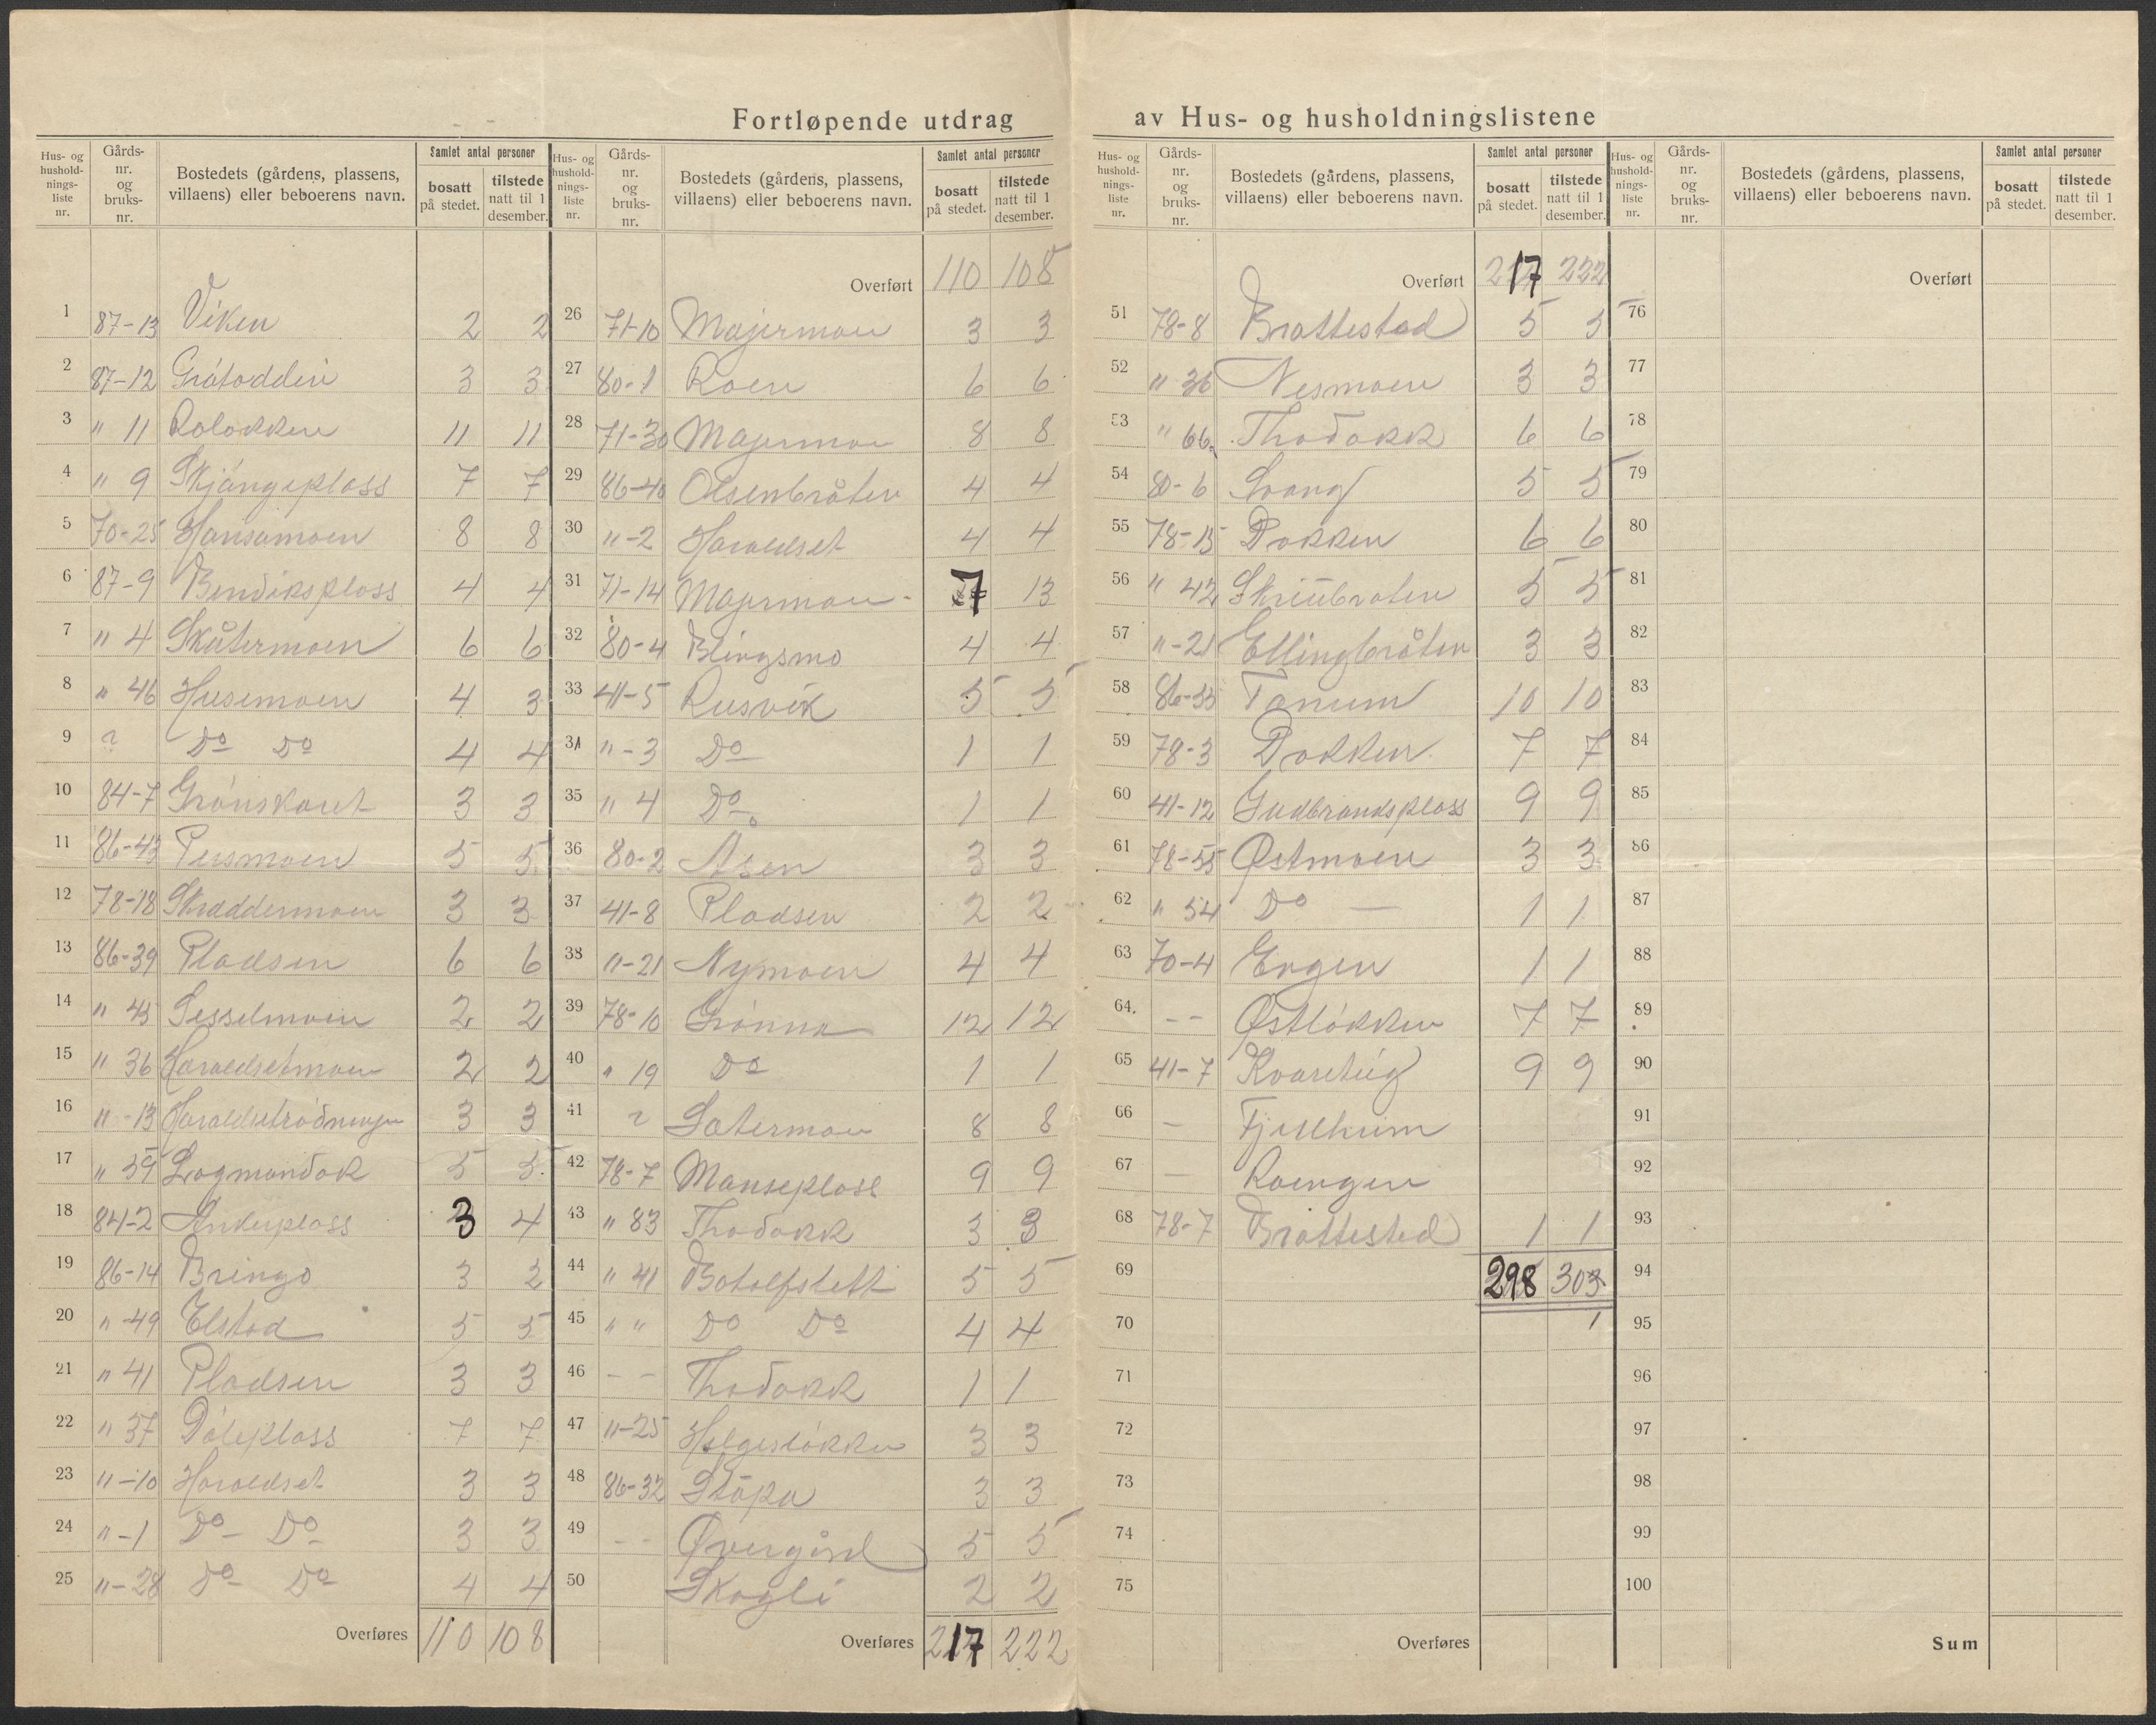 Fortløpende utdrag av Hus- og husholdningslistene
Hus- og husholdnings-liste nr. Gårds-nr. og bruks-nr. Bostedets (gårdens, plassens, villaens) eller beboerens navn. Samlet antal personer bosatt på stedet. tilstede natt til 1 desember.
1 87-13 Viken 2 2
2 87-12 Gråtoddein 3 3
3 " 11 Roløkken 11 11
4 " 9 Skjångeplass 7 7
5 70-25 Hansamoen 8 8
6 87-9 Bendiksplass 4 4
7 " 4 Skåtermoen 6 6
8 " 46 Husemoen 4 3
9 ? Do Do 4 4
10 84-7 Grønskart 3 3
11 86-43 Persmoen 5 5
12 78-18 Skraddermoen 3 3
13 86-39 Pladsen 6 6
14 " 45 Sesselmoen 2 2
15 " 36 Haraldsetmoen 2 2
16 "-13 3 3
17 " 59 Lagmandsøk 5 5
18 84-2 Ankerplass 3 4
19 86-14 Bringo 3 2
20 " 49 Elstad 5 5
21 " 41 Pladsen 3 3
22 " 37 Døleplass 7 7
23 "-10 Haraldset 3 3
24 "-1 Do Do 3 3
25 "-28 Do Do 4 4
Overføres 110 108
Hus- og husholdnings-liste nr. Gårds-nr. og bruks-nr. Bostedets (gårdens, plassens, villaens) eller beboerens navn. Samlet antal personer bosatt på stedet. tilstede natt til 1 desember.
Overført 110 108
26 71-10 Majermoen 3 3
27 80-1 Roen 6 6
28 71-30 Majermoen 8 8
29 86-40 Olsenbråten 4 4
30 "-2 Haraldset 4 4
31 71-14 Majermoen 7 13
32 80-4 Blingsmo 4 4
33 41-5 Rusvik 5 5
34 "-3 Do 1 1
35 " 4 Do 1 1
36 80-2 Åsen 3 3
37 41-8 Pladsen 2 2
38 "-21 Nymoen 4 4
39 78-10 Grønna 12 12
40 " 19 Do 1 1
41 ? Sætermoen 8 8
42 78-7 Manseplass 9 9
43 " 83 Thodøkk 3 3
44 " 41 Botolfslett 5 5
45 " " Do Do 4 4
46 - - Thodøkk 1 1
47 "-25 Helgesløkken 3 3
48 86-32 Støpa 3 3
49 - - Øvergård 5 5
50 Skogli 2 2
Overføres 217 222
Hus- og husholdnings-liste nr. Gårds-nr. og bruks-nr. Bostedets (gårdens, plassens, villaens) eller beboerens navn. Samlet antal personer bosatt på stedet. tilstede natt til 1 desember.
Overført 217 222
51 78-8 Brattestad 5 5
52 " 36 Nesmoen 3 3
53 " 66 Thodøkk 6 6
54 80-6 Svang 5 5
55 78-15 Dokken 6 6
56 " 42 Skriubråten 5 5
57 "-21 Ellingbråten 3 3
58 86-33 Tanum 10 10
59 78-3 Dokken 7 7
60 41-12 Gudbrandsplass 9 9
61 78-55 Østmoen 3 3
62 " 54 Do — 1 1
63 70-4 Engen 1 1
64. - - Østløkken 7 7
65 41-7 Kvarstig 9 9
66 — Fjellheim
67 — Roengen
68 78-7 Brattestad 1 1
69 298 303
70 1
71
72
73
74
75
Overføres
Hus- og husholdnings-liste nr. Gårds-nr. og bruks-nr. Bostedets (gårdens, plassens, villaens) eller beboerens navn. Samlet antal personer bosatt på stedet. tilstede natt til 1 desember.
Overført
76
77
78
79
80
81
82
83
84
85
86
87
88
89
90
91
92
93
94
95
96
97
98
99
100
Sum